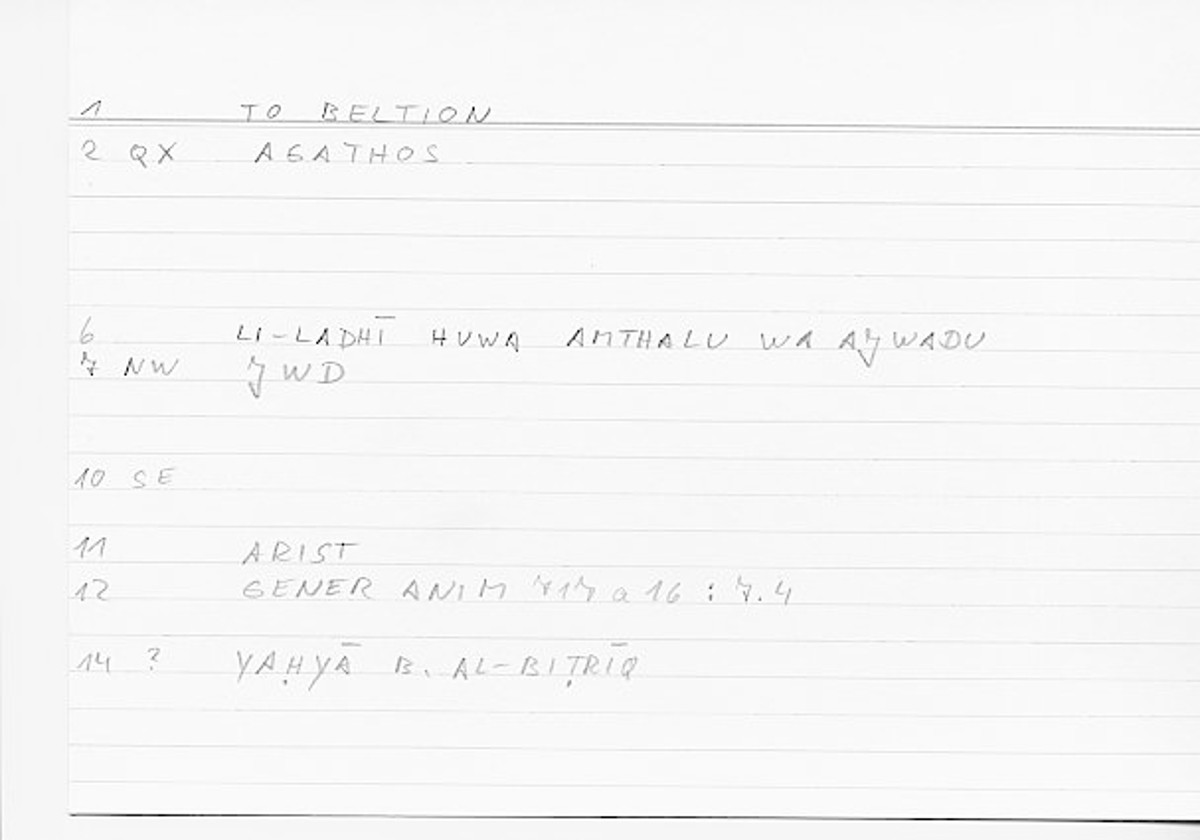 1 TO BELTION
2 QX AGATHOS
6 LI-LADHĪ HUWA AMTHALU WA AJWADU
7 NW JWD
10 SE
11 ARIST
12 GENER ANIM 717 a 16 : 7.4
14 ? YAḤYĀ B. AL-BIṬRĪQ